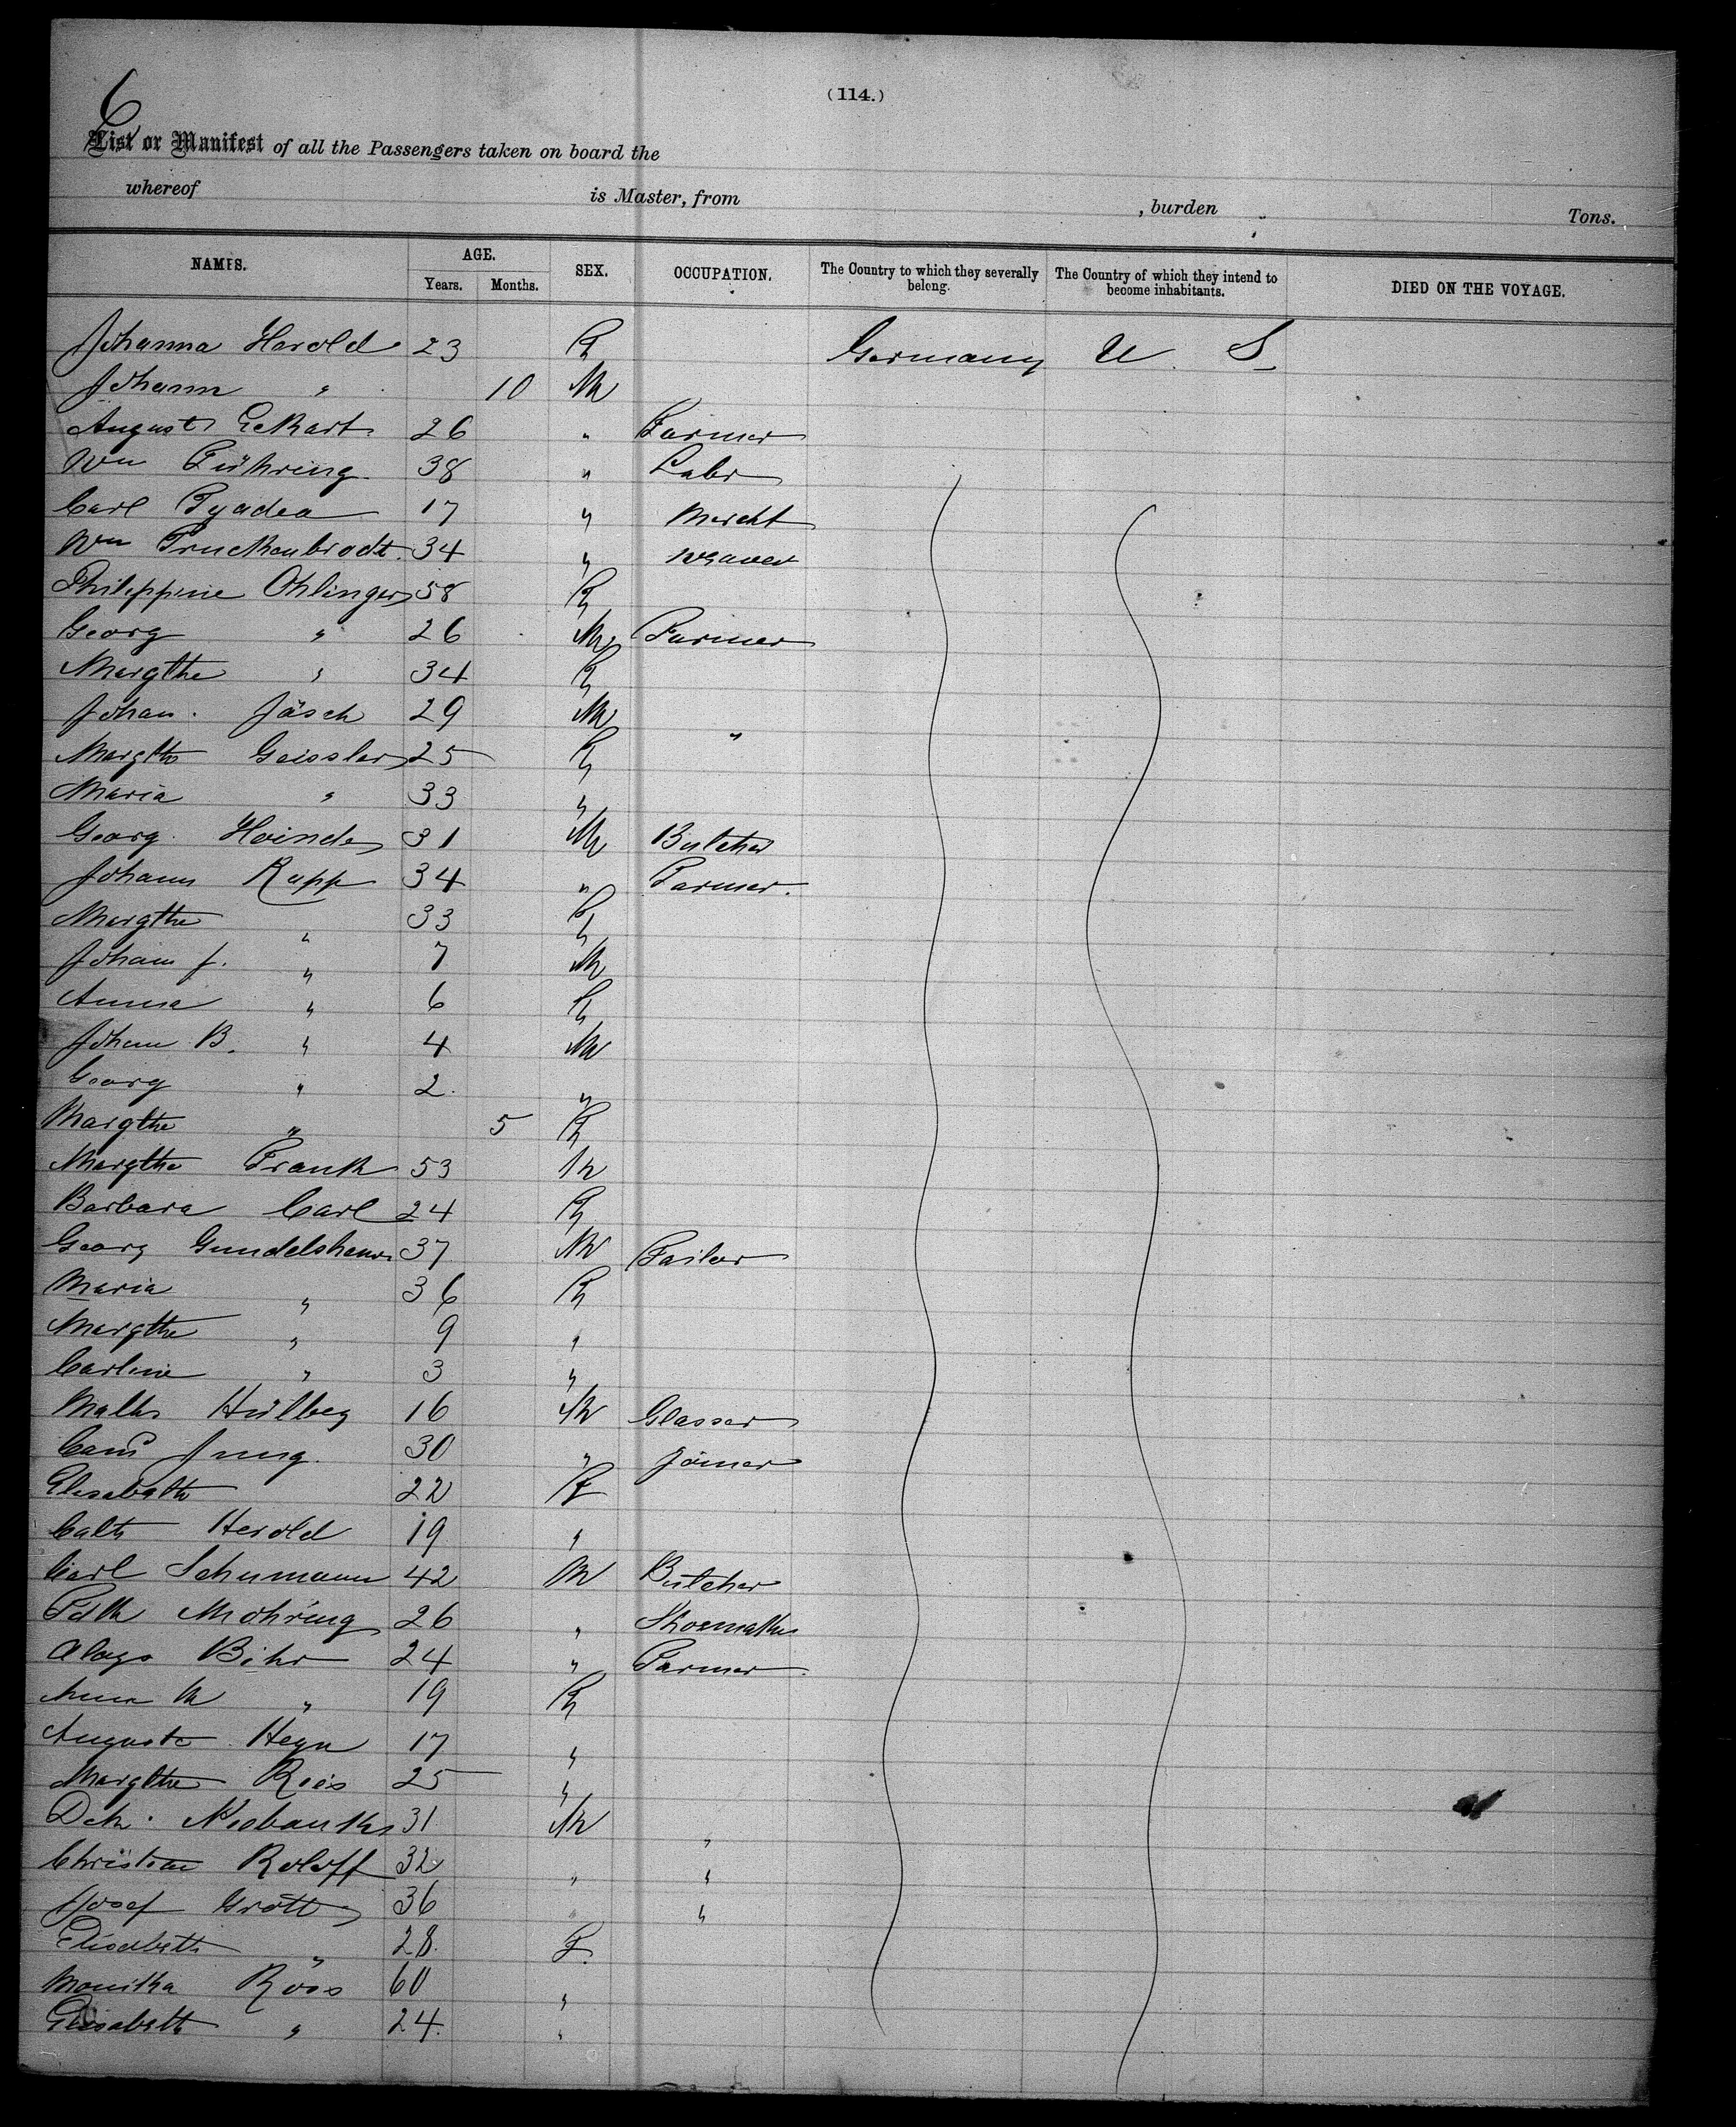 6
(114.)
List or Manifest of all the Passengers taken on board the
whereof is Master, from , burden Tons.
NAMES. AGE. SEX. OCCUPATION. The Country to which they severally belong. The Country of which they intend to become inhabitants. DIED ON THE VOYAGE.
Years. Months.
Johanna Harold 23 F Germany U. S.
Johann " 10 M
August Eckart 26 " Farmer
Wm Führing 38 " Labr
Carl Tyadea 17 " Mercht
Wm Truckenbrodt 34 " Weaver
Philippine Ohlinger 58 F
Georg " 26 M Farmer
Margthe " 34 F
Johan. Jäsch 29 M "
Margth Geissler 25 F
Maria " 33 "
Georg Heinde 31 M Butcher
Johann Rupp 34 " Farmer.
Margthe " 33 F
Johann J. " 7 M
Anna " 6 F
Johann B. " 4 M
Georg " 2. "
Margthe " 5 F
Margthe Frank 53 M
Barbara Carl 24 F
Georg 37 M Tailor
Maria " 36 F
Margthe " 9 "
Carline " 3 "
Hülbeg 16 M Glasser
Jung. 30 " Joiner
Elisabeth 22 F
Cath Herold 19 "
Carl Schumann 42 M Butcher
Möhring 26 " Shoemaker
Aloys Bihr 24 " Farmer
Anna M " 19 F
Auguste Heyn 17 "
Margthe Roos 25 "
31 M "
Christian Roloff 32 " "
Josef Grött 36 " "
Elisabeth " 28. F.
Monika Roos 60 "
Elisabeth " 24. "